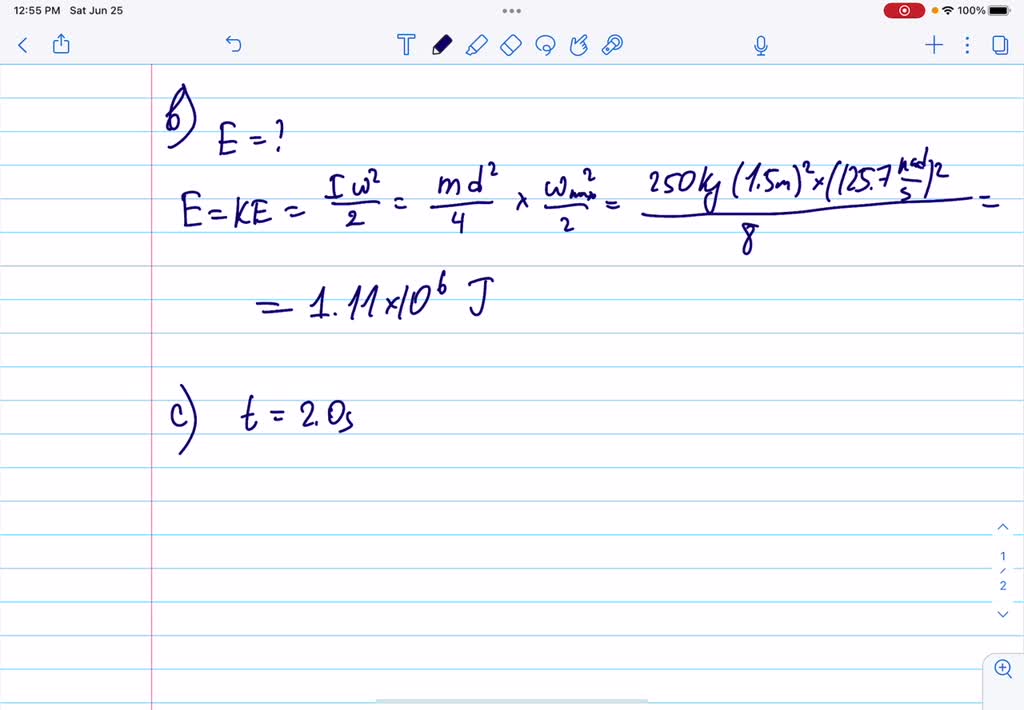 12:55 PM Sat Jun 25
100%
T
b)
E = ?
E = KE = Iω²/2 = md²/4 × ω_max²/2 = 250kg (1.5m)² × (125.7 rad/s)²/8 =
= 1.11×10⁶ J
c) t = 2.0s
1
/
2